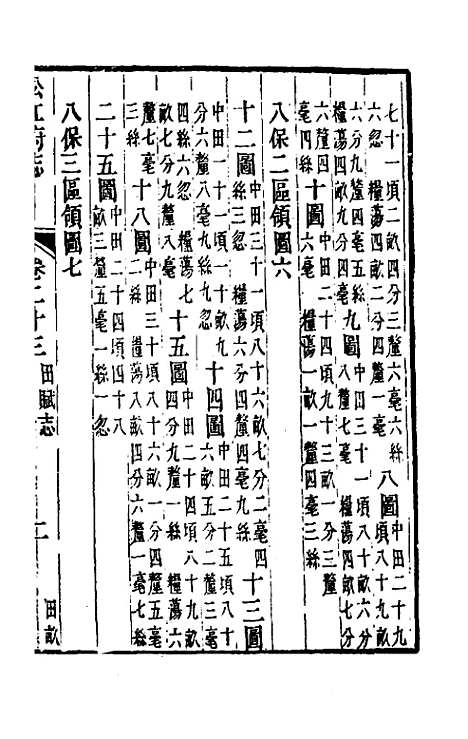 七十一頃二畝四分三釐六毫六絲六忽 糧蕩四畝二分四釐一毫 八圖 中田二十九頃八十九畝
六分九釐四毫五絲 糧蕩四畝九分四毫 九圖 中田三十一頃八十畝六分八釐七毫 糧蕩四畝七分
六釐四毫四絲 十圖 中田二十四頃九十三畝一分三釐六毫 糧蕩一畝一釐四毫三絲
八保二區領圖六
十二圖 中田三十一頃八十六畝七分二毫四絲三忽 糧蕩六分四釐四毫九絲 十三圖
中田一十一頃一十一畝九分六釐八毫九絲九忽 十四圖 中田二十五頃八十六畝五分二釐三毫
四絲六忽 糧蕩七畝七分九釐八毫 十五圖 中田二十四頃八十九畝四分九釐一絲 糧蕩六畝
釐七毫三絲 十八圖 中田三十頃八十六畝一分四釐五毫二絲 糧蕩八畝四分六釐一毫七絲
二十五圖 中田二十四頃四十八畝三釐五毫一絲一忽
八保三區領圖七
松江府志 卷二十三 田賦志 田畝